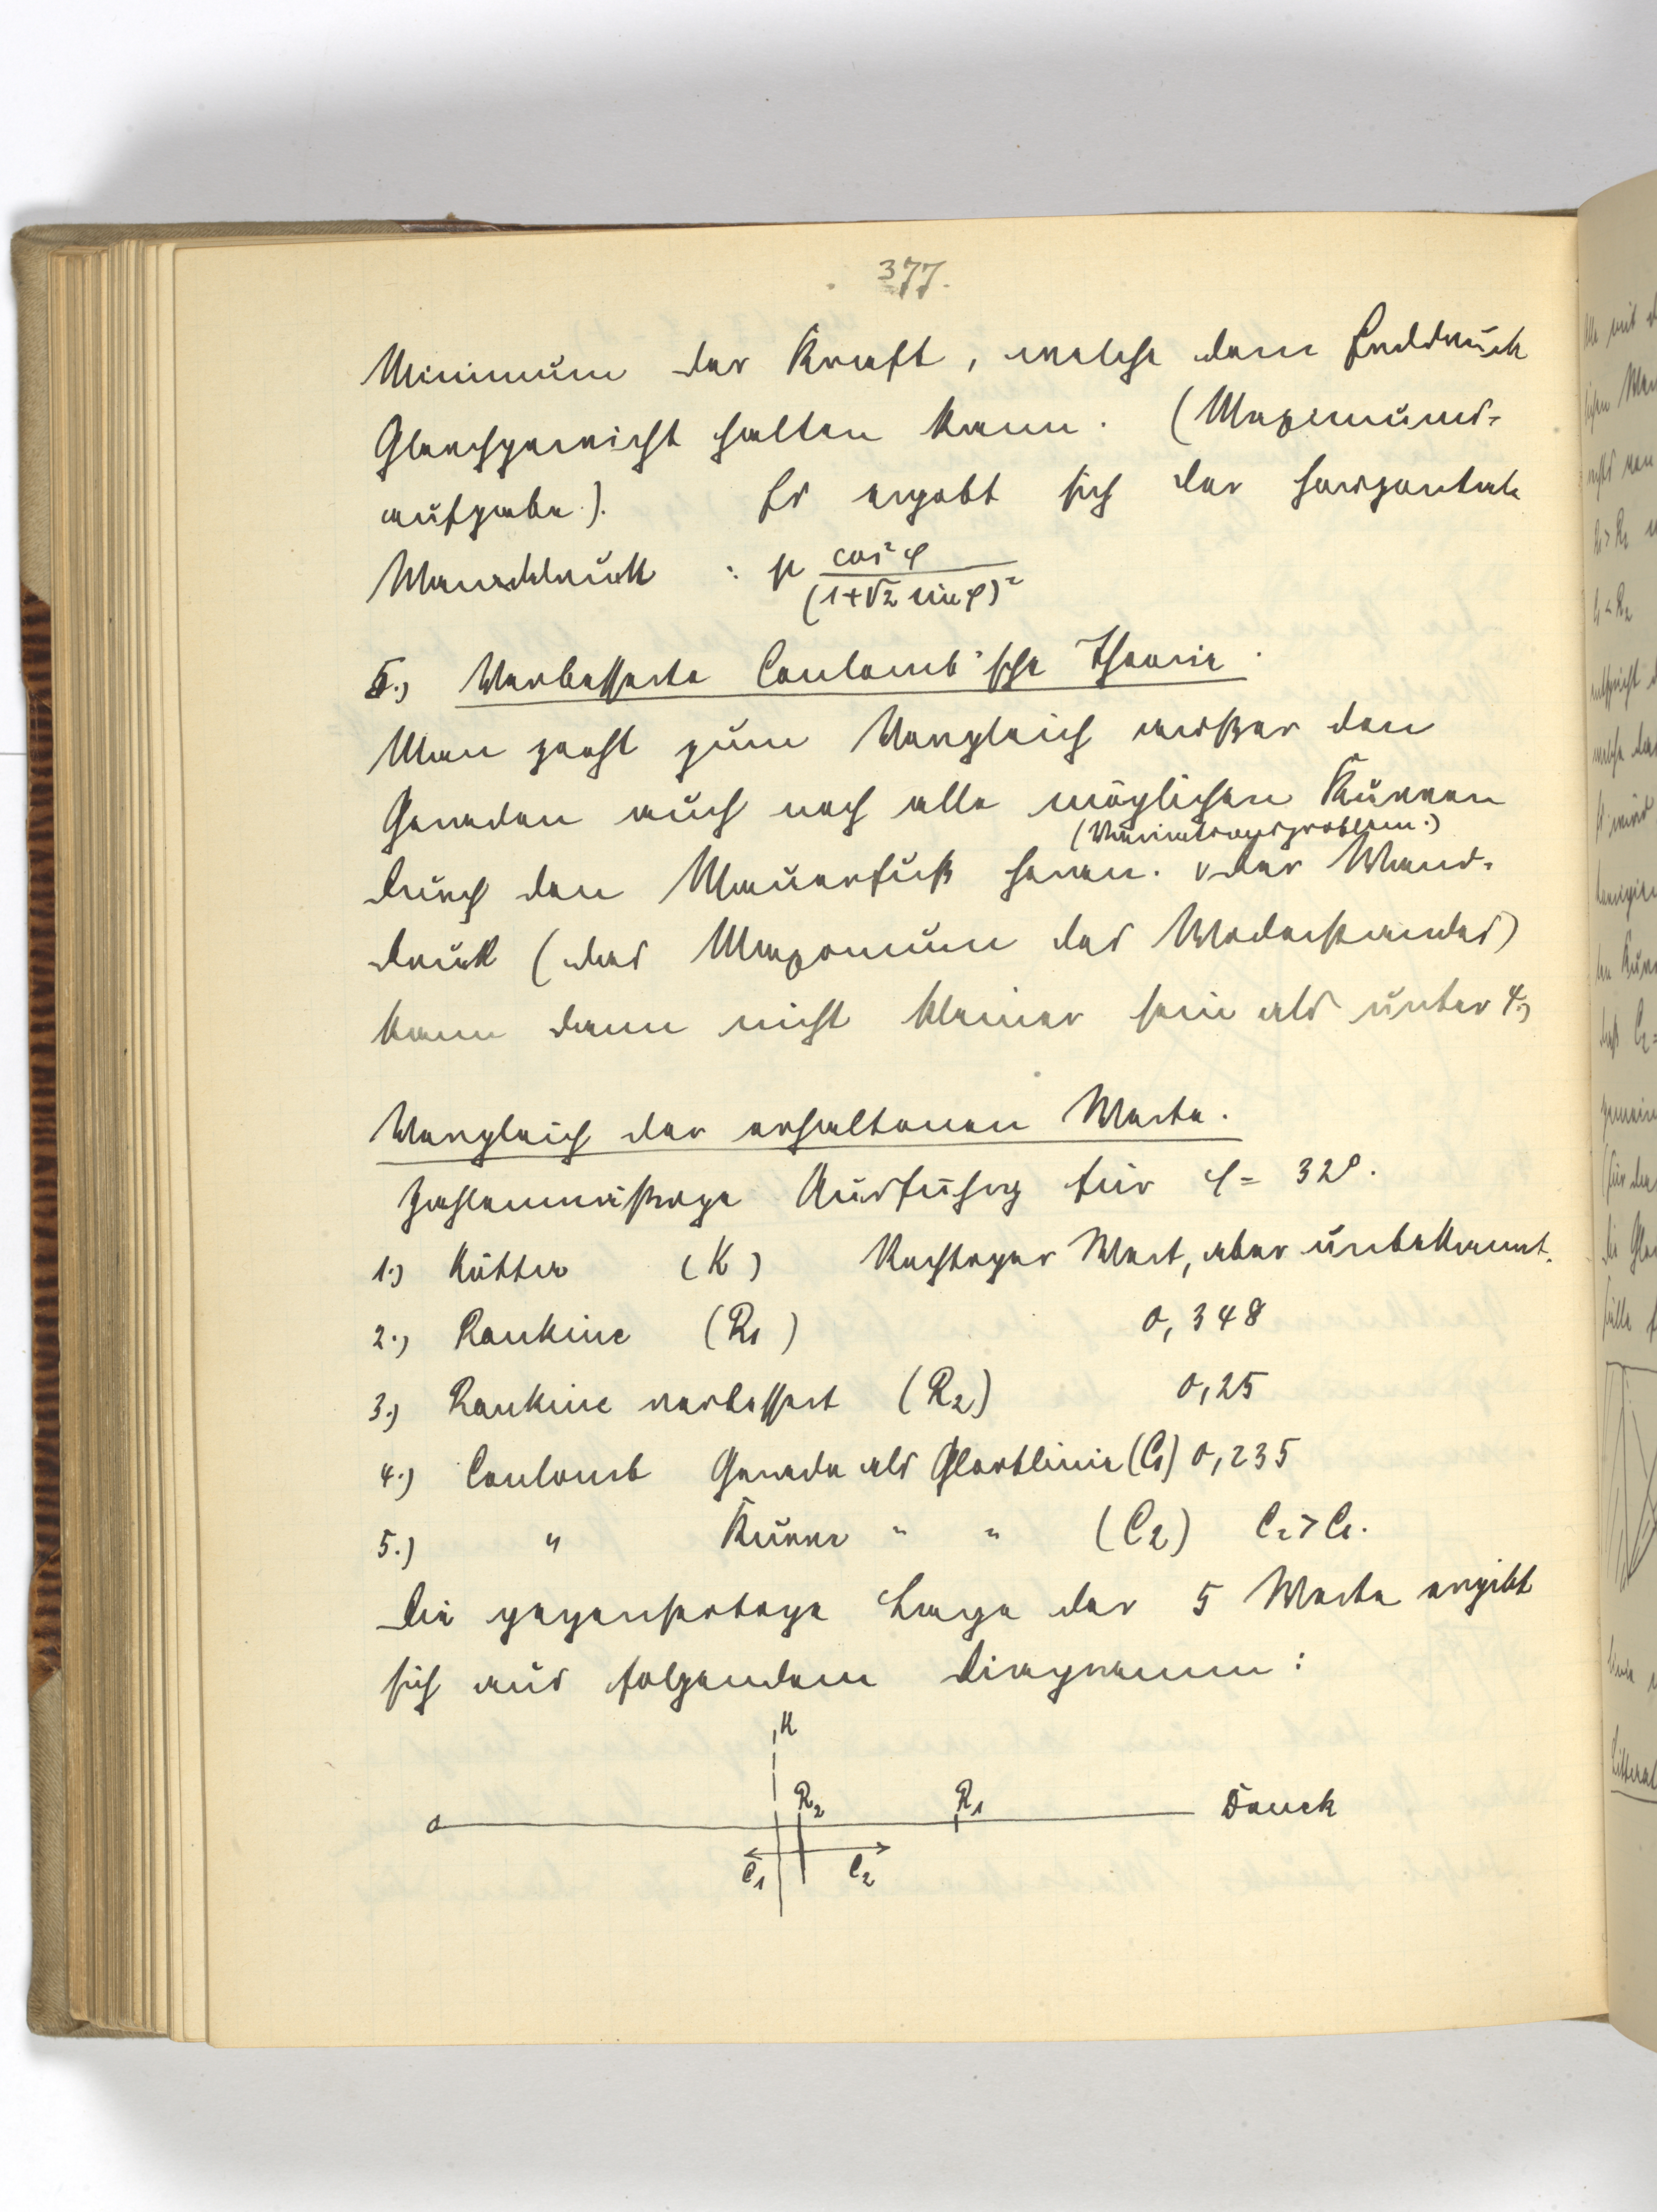 377.
Minimum der Kraft, welche dem Erddruck
Gleichgewicht halten kann. (Maximums-
aufgabe). Es ergibt sich der horizontale
Wanddruck : μ cos²φ / (1+√2 sin φ)²
5.) Verbesserte Coulomb'sche Theorie.
Man zieht zum Vergleich außer den
Geraden auch noch alle möglichen Kurven
(Variationsproblem.)
durch den Mauerfuß heran. v Der Wand-
druck (das Maximum des Widerstandes)
kann dann nicht kleiner sein als unter 4.)
Vergleich der erhaltenen Werte.
Zahlenmäßige Ausführg für φ = 32°.
1.) Kötter (K) Richtiger Wert, aber unbekannt.
2.) Rankine (R1) 0,348
3.) Rankine verbessert (R2) 0,25
4.) Coulomb Gerade als Gleitlinie (C1) 0,235
5.) " Kurve " " (C2) C2 > C1.
Die gegenseitige Lage der 5 Werte ergibt
sich aus folgendem Diagramm:
K
R2 R1
0 Druck
C1 C2